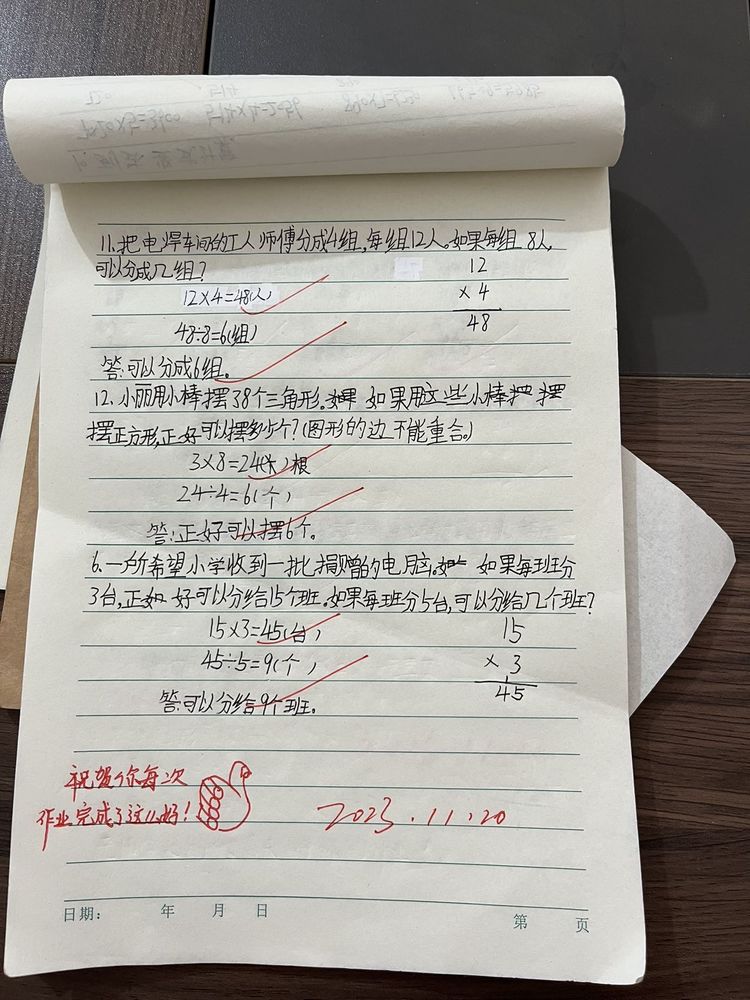 11.把电焊车间的工人师傅分成4组,每组12人。如果每组 8人,
可以分成几组?
12×4=48(人)
48÷8=6(组)
12
×4
48
答:可以分成6组。
12.小丽用小棒摆了8个三角形。如果用这些小棒 摆
摆正方形,正好可以摆多少个?(图形的边不能重合。)
3×8=24( )根
24÷4=6(个)
答:正好可以摆6个。
6.一所希望小学收到一批捐赠的电脑。 如果每班分
3台,正 好可以分给15个班。如果每班分5台,可以分给几个班?
15×3=45(台)
45÷5=9(个)
15
×3
45
答:可以分给9个班。
祝贺你每次
作业完成了这么好!
2023.11.20
日期: 年 月 日
第 页